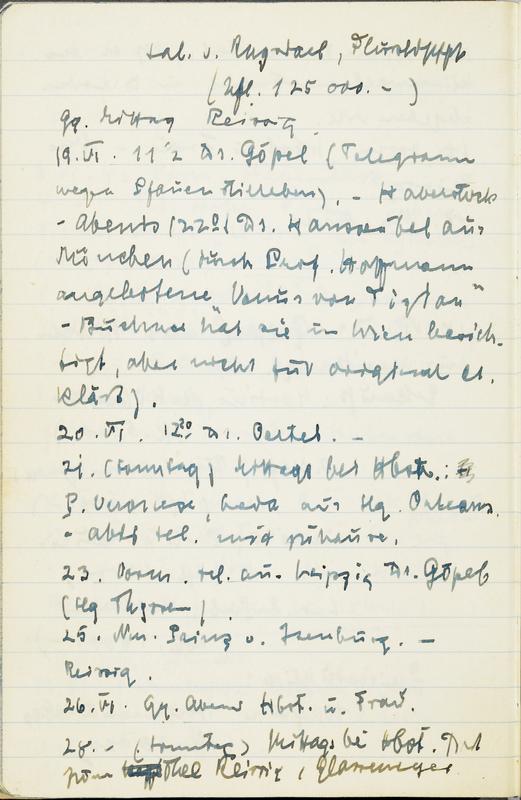 Sal. v. Ruysdael, Flusslandschaft
(hfl. 125 000.-)
Gg. Mittag Reissig.
19.VI. 11 1/2 Dr. Göpel (Telegramm
wegen Pfauenstilleben). - Haberstock
- Abends (22°°) Dr. Hanns aus
München (durch Prof. Hoffmann
angebotene "Venus von Tizian"
- Buchner hat sie in Wien besich-
tigt, aber nicht für original er-
klärt).
20.VI. 12 30 Dr. Oertel. -
21. (Sonntag) Mittags bei Hbst.:
P. Veronese, Leda aus Slg. Orleans.
- abds tel. mit zuhause.
23. Vorm. tel. aus Leipzig Dr. Göpel
(Slg Thyssen)
25. Nm. Prinz v. Isenburg. -
Reissig.
26.VI. Gg. Abend Hbst. u. Frau.
28. - (Sonntag) Mittags bei Hbst.
Reissig,